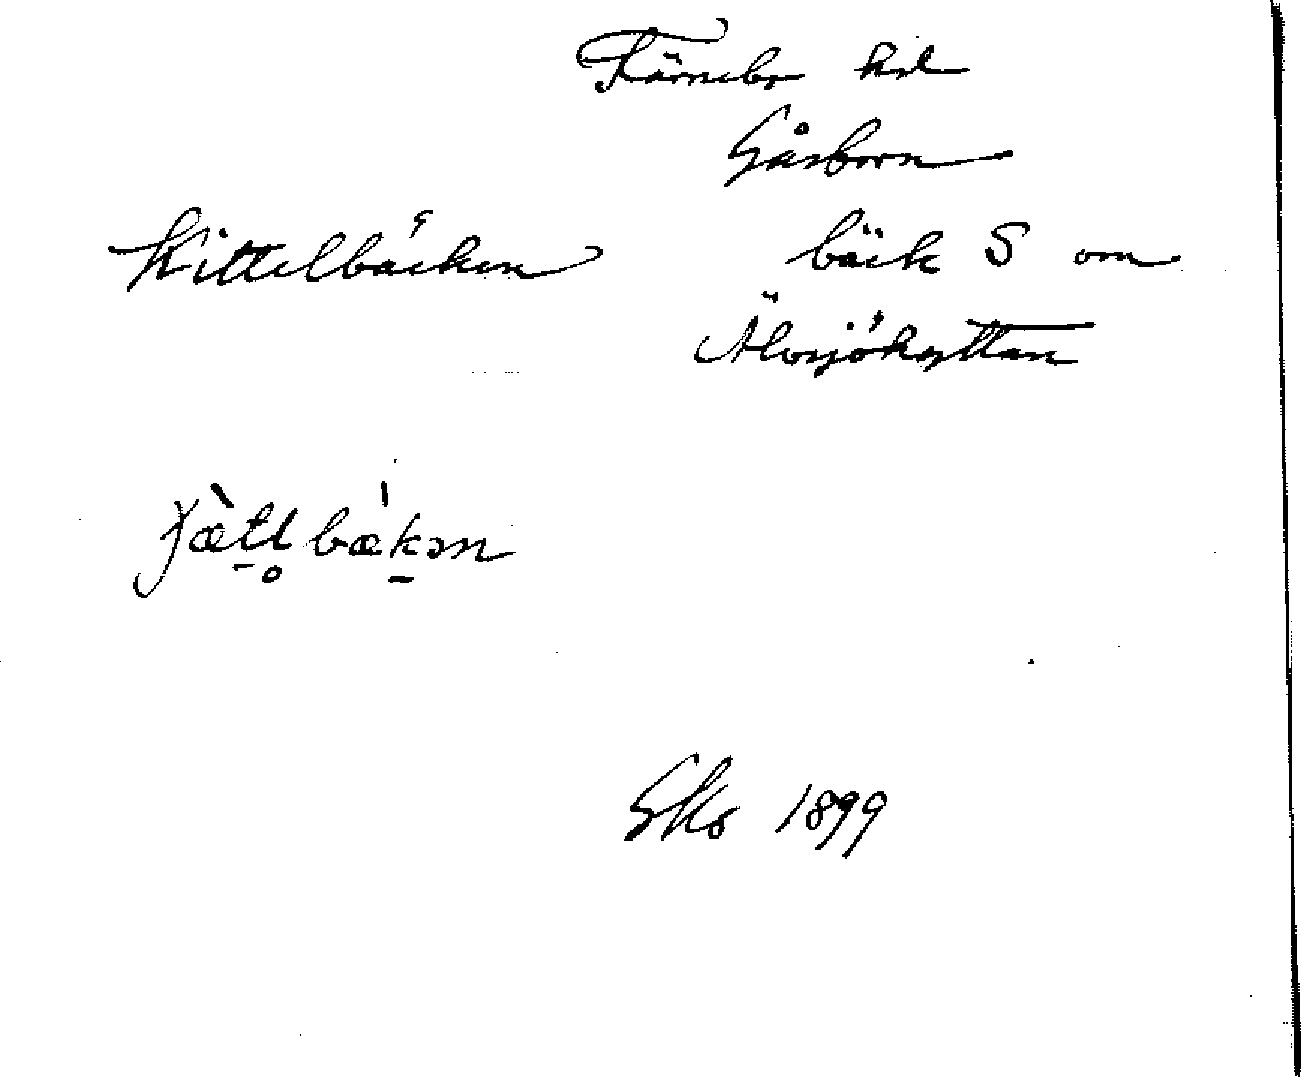 Färnebo hd
Gåsborn
Kittelbäcken bäck S om
Älvsjöhyttan
bækən
GKs 1899